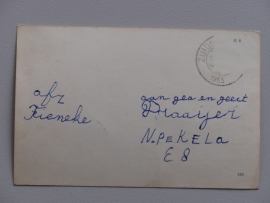 afz
Fieneke
aan gea en geert
Draaijer
N.PEKELA
E 8